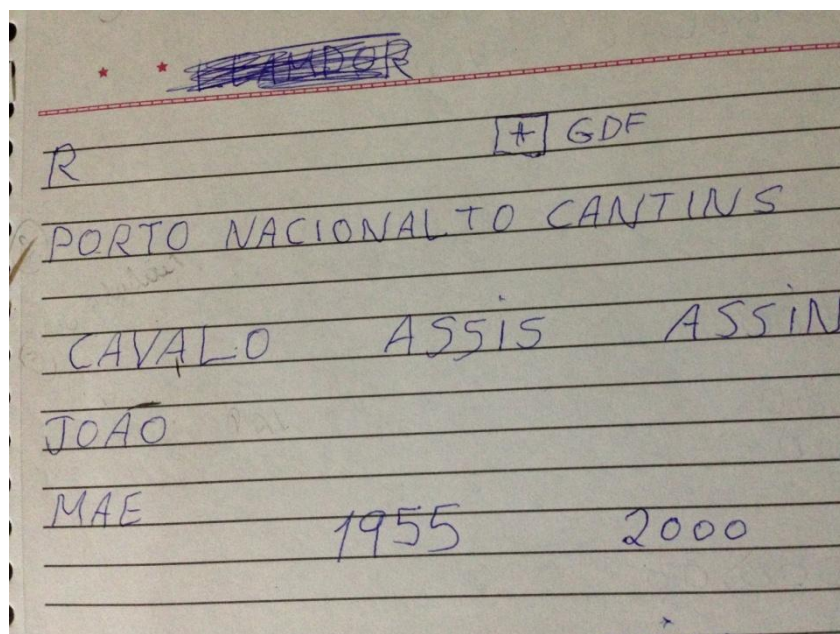 R + GDF
PORTO NACIONAL TO CANTINS
CAVALO ASSIS ASSIN
JOÃO
MAE 1955 2000